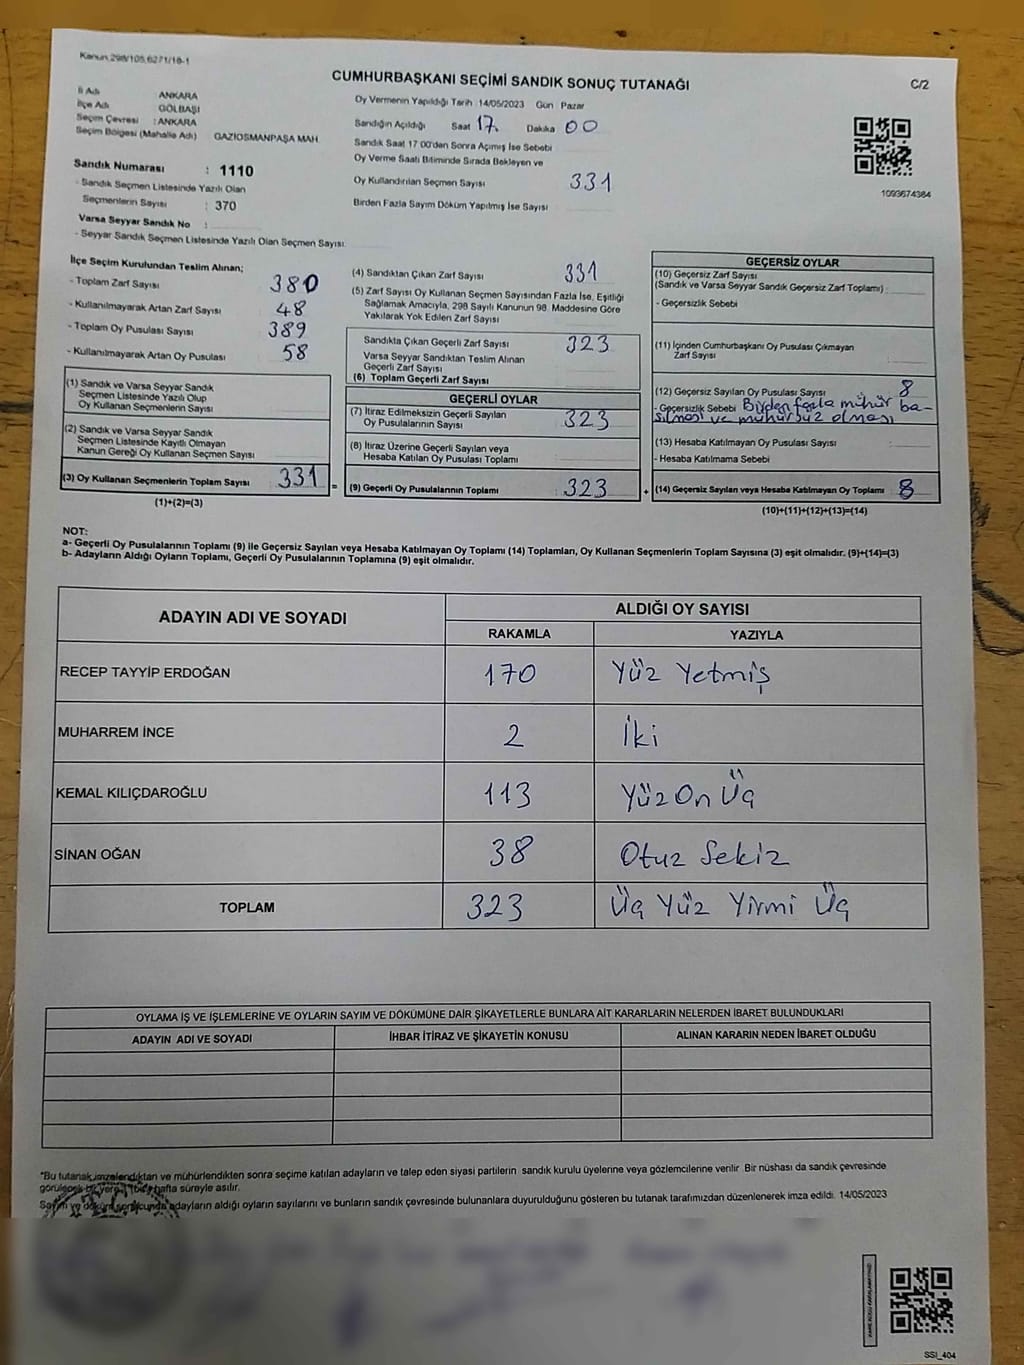 Kanun:298/105,6271/18-1
CUMHURBAŞKANI SEÇİMİ SANDIK SONUÇ TUTANAĞI
C/2
İl Adı ANKARA
İlçe Adı GÖLBAŞI
Seçim Çevresi : ANKARA
Seçim Bölgesi (Mahalle Adı) GAZİOSMANPAŞA MAH.
Oy Vermenin Yapıldığı Tarih : 14/05/2023 Gün : Pazar
Sandığın Açıldığı Saat 17. Dakika 00
Sandık Saat 17.00'den Sonra Açılmış İse Sebebi
Oy Verme Saati Bitiminde Sırada Bekleyen ve
Oy Kullandırılan Seçmen Sayısı 331
Birden Fazla Sayım Döküm Yapılmış İse Sayısı
1093674384
Sandık Numarası : 1110
- Sandık Seçmen Listesinde Yazılı Olan
Seçmenlerin Sayısı : 370
Varsa Seyyar Sandık No :
- Seyyar Sandık Seçmen Listesinde Yazılı Olan Seçmen Sayısı:
İlçe Seçim Kurulundan Teslim Alınan;
- Toplam Zarf Sayısı 380
- Kullanılmayarak Artan Zarf Sayısı 48
- Toplam Oy Pusulası Sayısı 389
- Kullanılmayarak Artan Oy Pusulası 58
(1) Sandık ve Varsa Seyyar Sandık
Seçmen Listesinde Yazılı Olup
Oy Kullanan Seçmenlerin Sayısı
(2) Sandık ve Varsa Seyyar Sandık
Seçmen Listesinde Kayıtlı Olmayan
Kanun Gereği Oy Kullanan Seçmen Sayısı
(3) Oy Kullanan Seçmenlerin Toplam Sayısı 331
(1)+(2)=(3)
=
(4) Sandıktan Çıkan Zarf Sayısı 331
(5) Zarf Sayısı Oy Kullanan Seçmen Sayısından Fazla İse, Eşitliği
Sağlamak Amacıyla, 298 Sayılı Kanunun 98. Maddesine Göre
Yakılarak Yok Edilen Zarf Sayısı
Sandıkta Çıkan Geçerli Zarf Sayısı 323
Varsa Seyyar Sandıktan Teslim Alınan
Geçerli Zarf Sayısı
(6) Toplam Geçerli Zarf Sayısı
GEÇERLİ OYLAR
(7) İtiraz Edilmeksizin Geçerli Sayılan
Oy Pusulalarının Sayısı 323
(8) İtiraz Üzerine Geçerli Sayılan veya
Hesaba Katılan Oy Pusulası Toplamı
(9) Geçerli Oy Pusulalarının Toplamı 323
+
GEÇERSİZ OYLAR
(10) Geçersiz Zarf Sayısı
(Sandık ve Varsa Seyyar Sandık Geçersiz Zarf Toplamı) :
- Geçersizlik Sebebi
(11) İçinden Cumhurbaşkanı Oy Pusulası Çıkmayan
Zarf Sayısı
(12) Geçersiz Sayılan Oy Pusulası Sayısı 8
- Geçersizlik Sebebi Birden fazla mühür ba-
sılması ve mühürsüz olması
(13) Hesaba Katılmayan Oy Pusulası Sayısı
- Hesaba Katılmama Sebebi
(14) Geçersiz Sayılan veya Hesaba Katılmayan Oy Toplamı 8
(10)+(11)+(12)+(13)=(14)
NOT:
a- Geçerli Oy Pusulalarının Toplamı (9) ile Geçersiz Sayılan veya Hesaba Katılmayan Oy Toplamı (14) Toplamları, Oy Kullanan Seçmenlerin Toplam Sayısına (3) eşit olmalıdır. (9)+(14)=(3)
b- Adayların Aldığı Oyların Toplamı, Geçerli Oy Pusulalarının Toplamına (9) eşit olmalıdır.
ADAYIN ADI VE SOYADI ALDIĞI OY SAYISI
RAKAMLA YAZIYLA
RECEP TAYYİP ERDOĞAN 170 Yüz Yetmiş
MUHARREM İNCE 2 İki
KEMAL KILIÇDAROĞLU 113 Yüz On Üç
SİNAN OĞAN 38 Otuz Sekiz
TOPLAM 323 Üç Yüz Yirmi Üç
OYLAMA İŞ VE İŞLEMLERİNE VE OYLARIN SAYIM VE DÖKÜMÜNE DAİR ŞİKAYETLERLE BUNLARA AİT KARARLARIN NELERDEN İBARET BULUNDUKLARI
ADAYIN ADI VE SOYADI İHBAR İTİRAZ VE ŞİKAYETİN KONUSU ALINAN KARARIN NEDEN İBARET OLDUĞU
*Bu tutanak imzalandıktan ve mühürlendikten sonra seçime katılan adayların ve talep eden siyasi partilerin sandık kurulu üyelerine veya gözlemcilerine verilir. Bir nüshası da sandık çevresinde
görülecek bir yere hafta süreyle asılır.
Sayım ve döküm sonucunda adayların aldığı oyların sayılarını ve bunların sandık çevresinde bulunanlara duyurulduğunu gösteren bu tutanak tarafımızdan düzenlenerek imza edildi. 14/05/2023
SSI_404